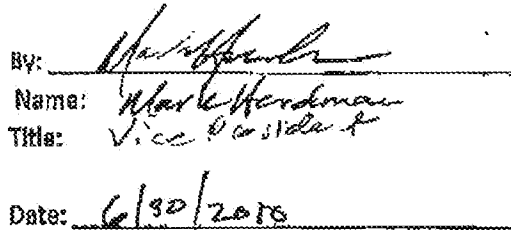 By:
Name: Mark Herdman
Title: Vice President
Date: 6/30/2010